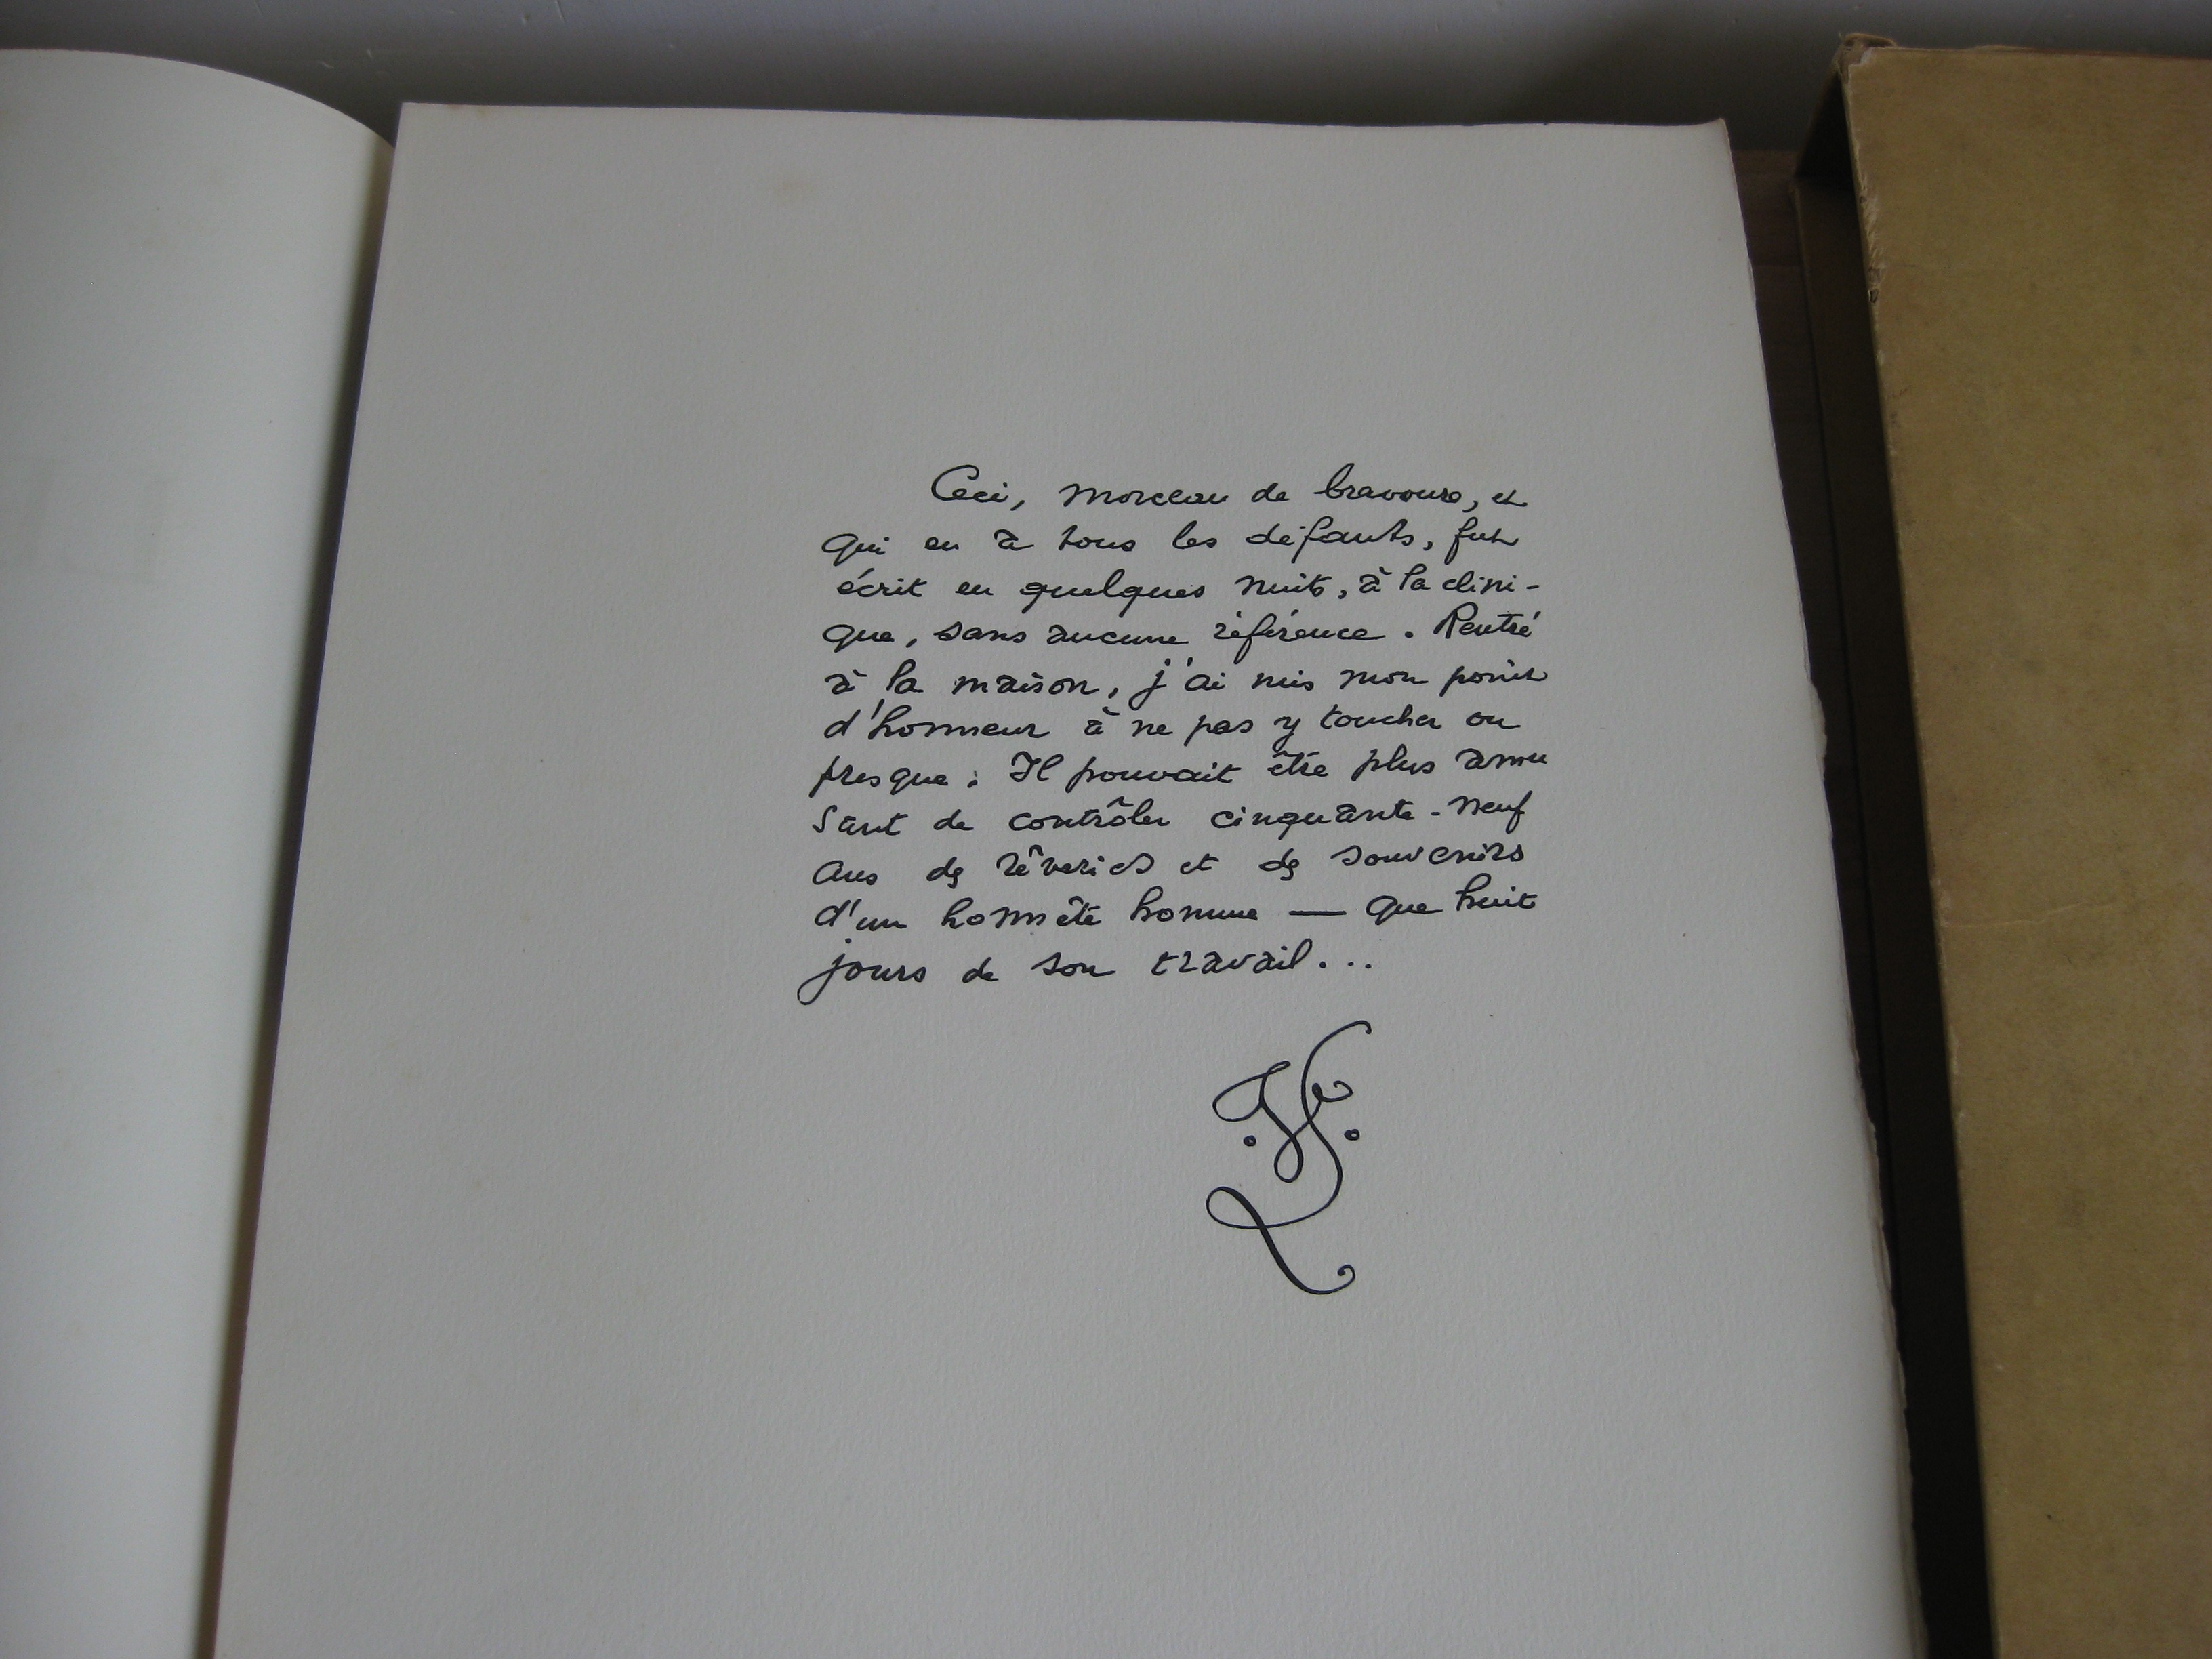 Ceci, morceau de bravoure, et
qui en a tous les défauts, fut
écrit en quelques nuits, à la clini-
que, sans aucune référence. Rentré
à la maison, j'ai mis mon point
d'honneur à ne pas y toucher ou
presque : Il pouvait être plus amu
sant de contrôler cinquante-neuf
ans de rêveries et de souvenirs
d'un honnête homme — que huit
jours de son travail...